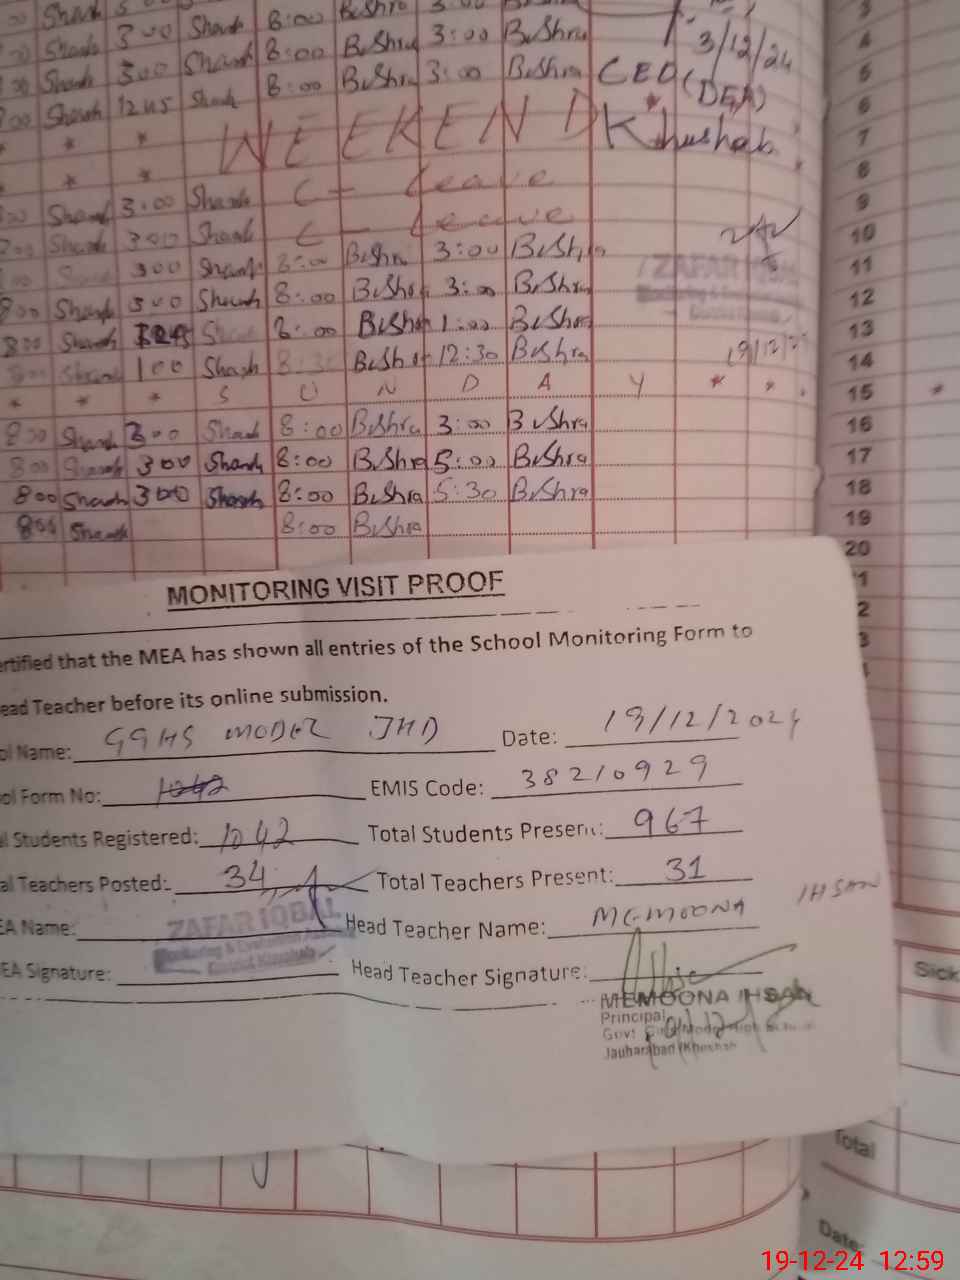 Shamh 300 Shamh 8:00 Bushra 3:00 Bushra
Shamh 300 Shamh 8:00 Bushra 3:00 Bushra 3/12/24
Shamh 300 Shamh 8:00 Bushra 3:00 Bushra CEO (DEA)
Shamh 1245 Shamh
* * WEEKEND Khushab
* *
Shamh 3:00 Shamh C - leave
Shamh 300 Shamh C - leave
300 Shamh 8:00 Bushra 3:00 Bushra ZAFAR IQBAL
800 Shamh 300 Shamh 8:00 Bushra 3:00 Bushra
800 Shamh Shamh 8:00 Bushra 1:00 Bushra
Shamh 100 Shamh 8:30 Bushra 12:30 Bushra 19/12/
* * * S U N D A Y * * *
800 Shamh 300 Shamh 8:00 Bushra 3:00 Bushra
800 Shamh 300 Shamh 8:00 Bushra 5:00 Bushra
800 Shamh 300 Shamh 8:00 Bushra 5:30 Bushra
800 Shamh 8:00 Bushra
3
4
5
6
7
8
9
10
11
12
13
14
15 *
16
17
18
19
20
1
2
3
MONITORING VISIT PROOF
ertified that the MEA has shown all entries of the School Monitoring Form to
ead Teacher before its online submission.
ol Name: GGHS MODEL JHD Date: 19/12/2024
ol Form No: EMIS Code: 38210929
al Students Registered: 1042 Total Students Present: 967
al Teachers Posted: 34 Total Teachers Present: 31
EA Name: ZAFAR IQBAL Head Teacher Name: MEMOONA IHSAN
Monitoring & Evaluation
District Khushab
EA Signature: Head Teacher Signature:
MEMOONA IHSAN
Principal
Govt Girls Model High School
Jauharabad (Khushab
Sick
Total
Date:
19-12-24 12:59